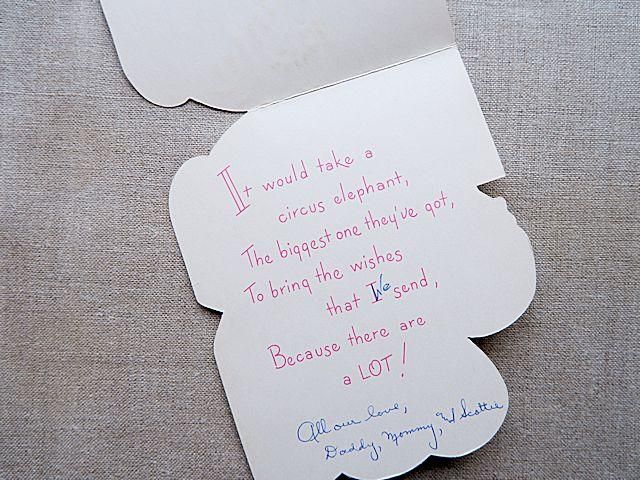 It would take a
circus elephant,
The biggest one they've got,
To bring the wishes
that We send,
Because there are
a LOT!
All our love,
Daddy, Mommy, and Scottie